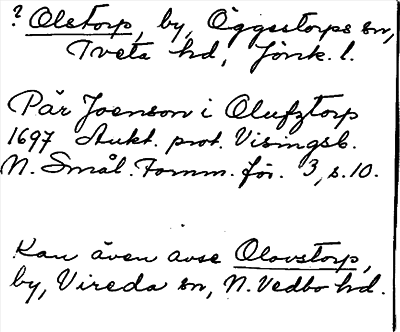 ? Olstorp, by, Öggestorps sn,
Tveta hd, Jönk. l.
Pär Joenson i Olufztorp
1697 Aukt. prot. Visingsb.
N. Smål. Fornm.för. 3, s. 10.
Kan även avse Olovstorp,
by, Vireda sn, N. Vedbo hd.